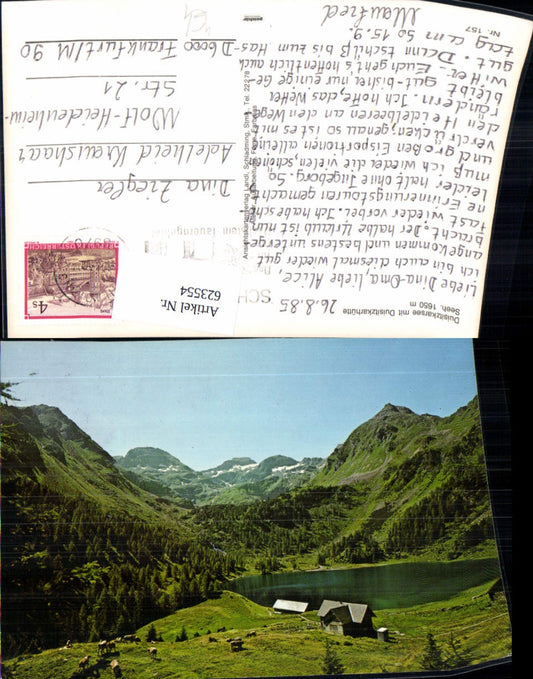 Duisitzkarsee mit Duisitzkarhütte
Seeh. 1650 m
26.8.85
Liebe Dina-Oma, liebe Alice,
ich bin auch diesmal wieder gut
angekommen und bestens unterge-
bracht. Der halbe Urlaub ist nun
fast wieder vorbei. Ich habe schö-
ne Erinnerungstouren gemacht
leider halt ohne Ingeborg. So
muß ich wieder die vielen, schönen
und großen Eisportionen alleine
verdrücken; genau so ist es mit
den Heidelbeeren an den Wege-
rändern. Ich hoffe, das Wetter
bleibt gut - bisher nur einige Ge-
witter - Euch geht's hoffentlich auch
gut. Dann tschüß bis zum
tag am So 15.9.
Manfred
Nr. 157
Tel. 22278
Artikel Nr.
623554
REPUBLIK ÖSTERREICH
4 S
Dina Ziegler
Adelheid Kraishaar
Wolf-Heidenheim-
Str. 21
D 6000 Frankfurt/M 90